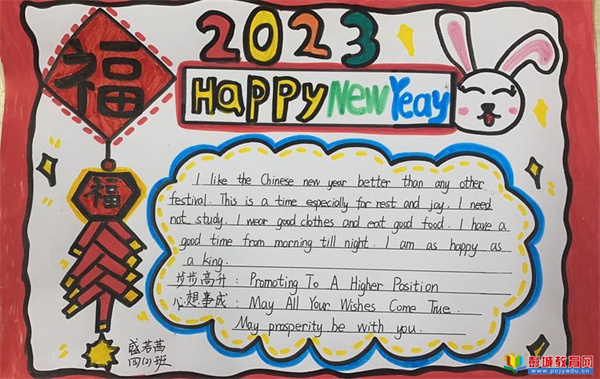 2023
福
Happy New Yeay
福
I like the Chinese new year better than any other
festival. This is a time especially for rest and joy. I need
not study. I wear good clothes and eat good food. I have a
good time from morning till night. I am as happy as
a king.
步步高升: Promoting To A Higher Position
心想事成: May All Your Wishes Come True.
May prosperity be with you.
盛若茜
四(1)班
彭城教育网
www.pcjyedu.cn